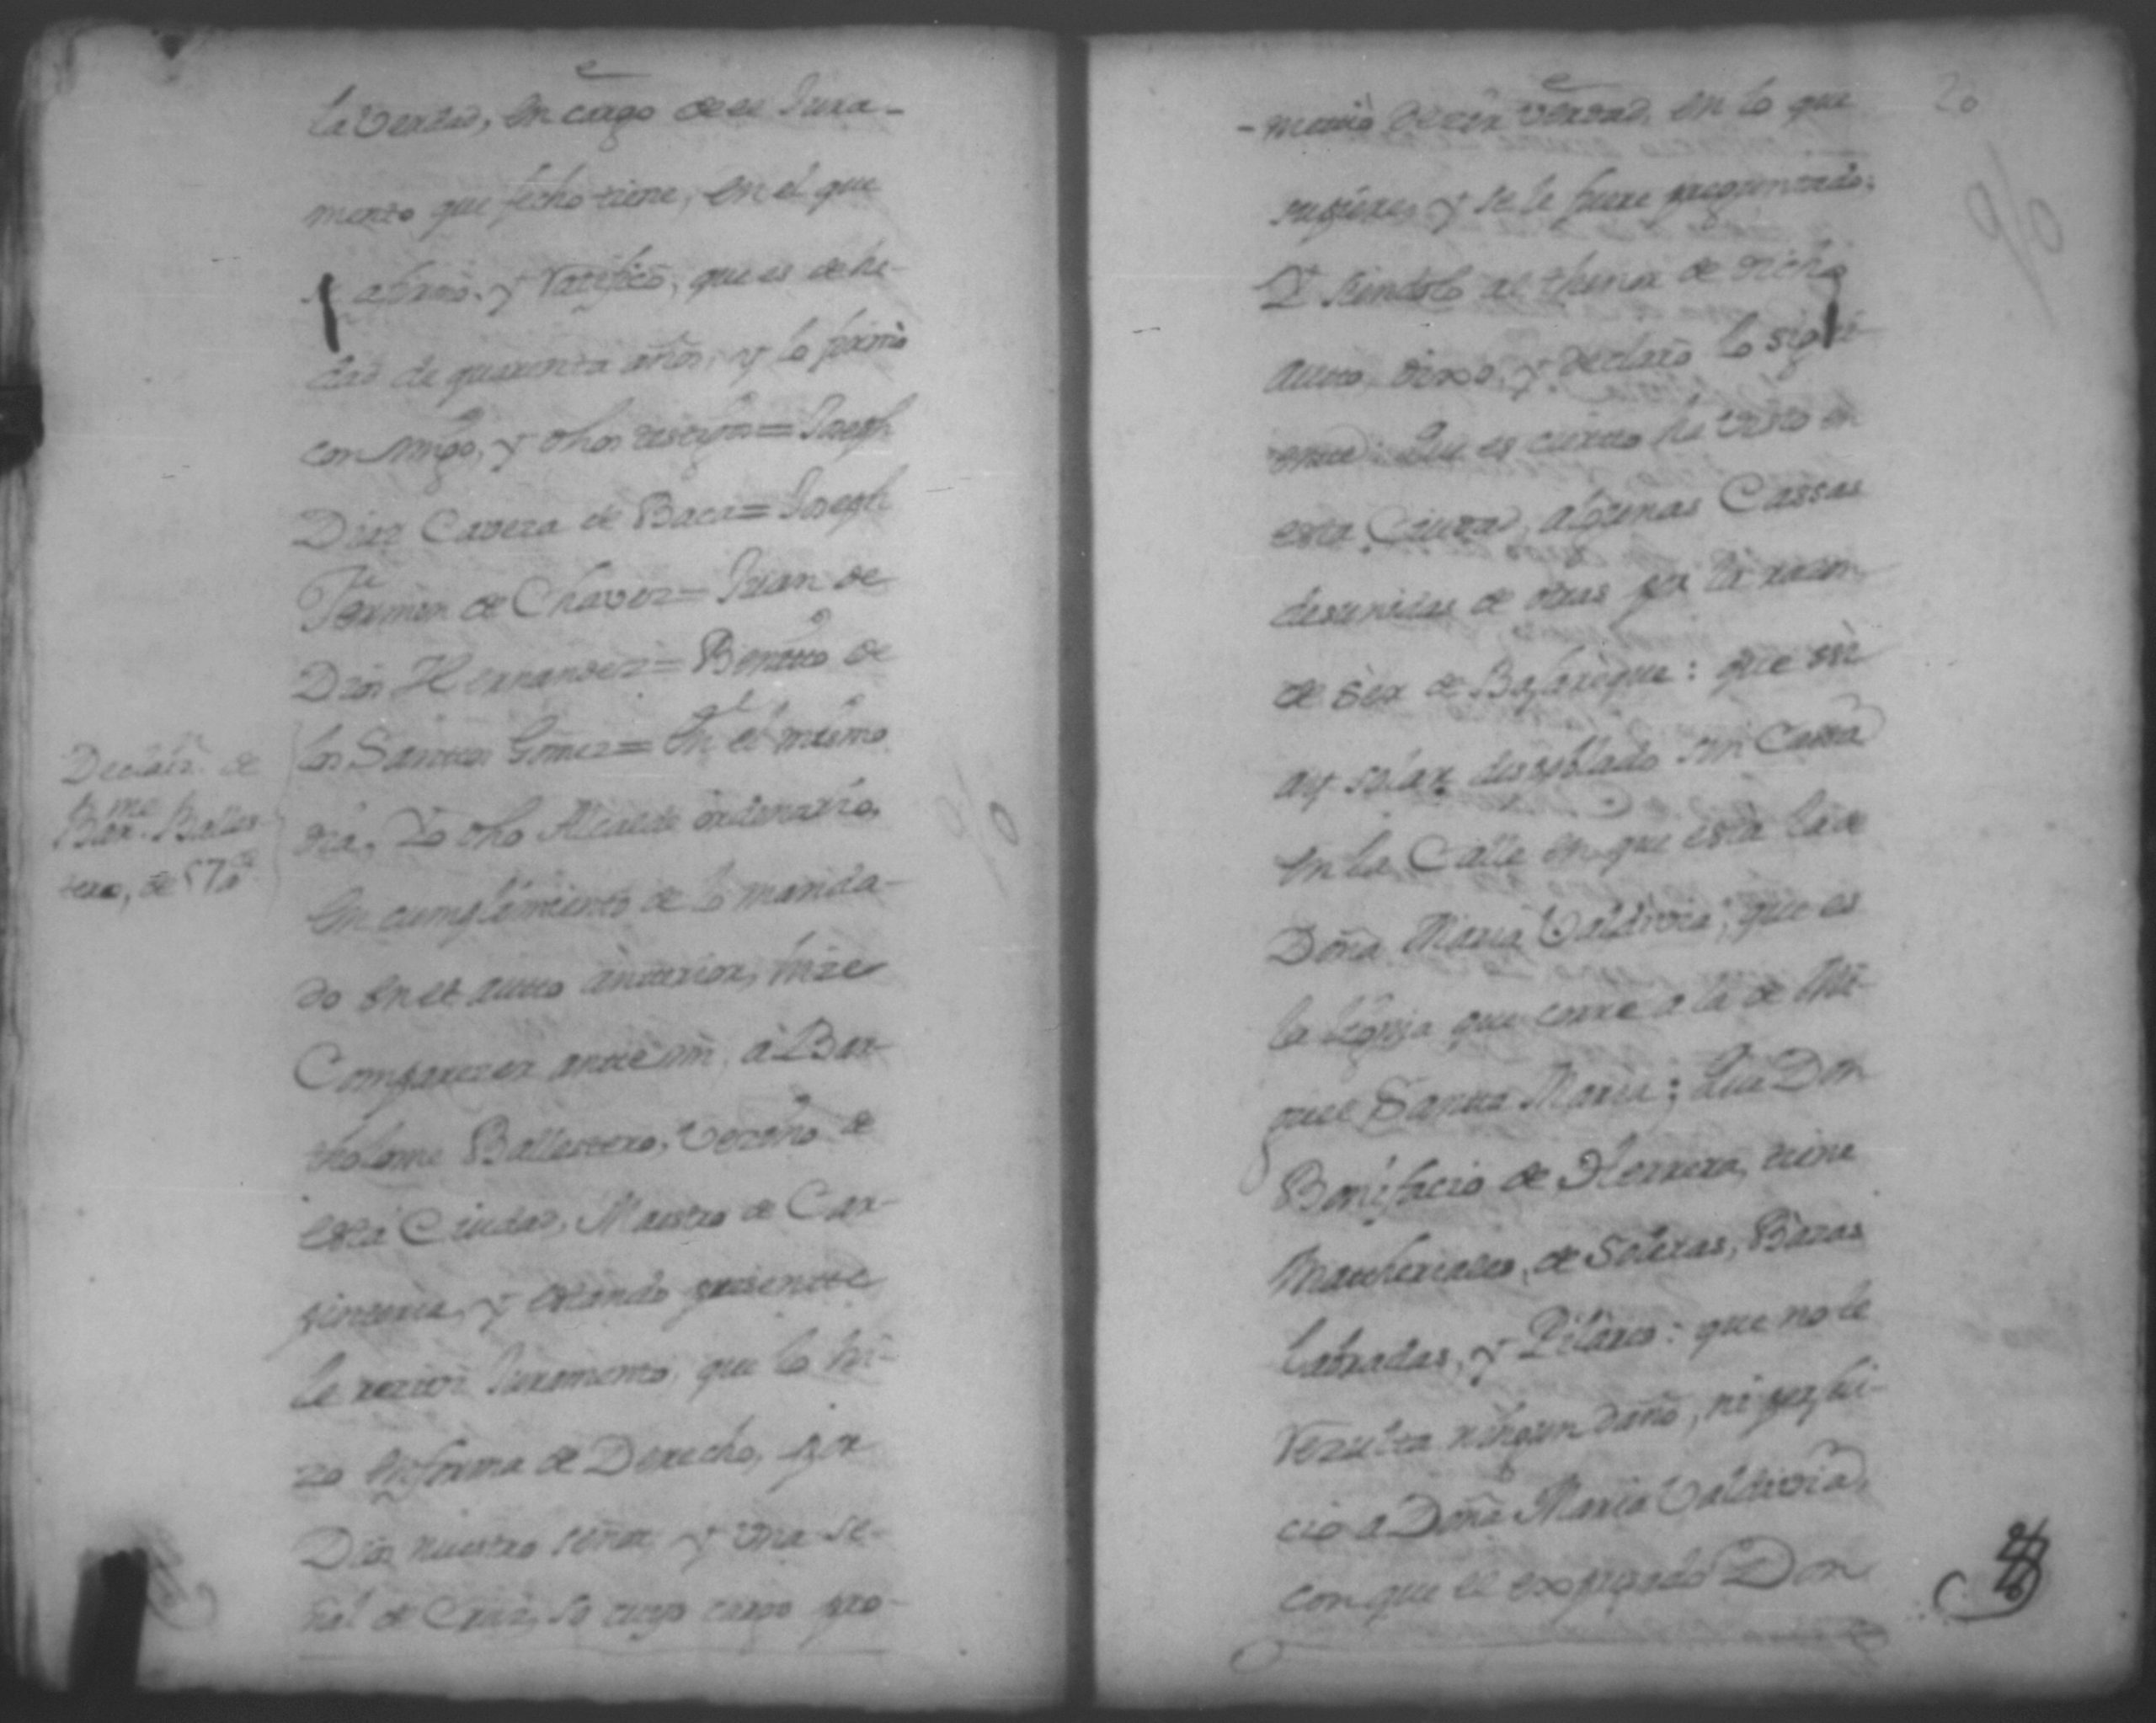 la Verdad, en cargo de el Jura-
mento que fecho tiene, en el que
se afirmò, y ratificò, que es de he-
dad de quarenta años, y lo firmò
con migo, y dhos testigos = Joseph
Dias Caveza de Baca = Joseph
Fermin de Chavez = Juan de
Dios Hernandez = Benitto de
los Santtos Gomez = En el mismo
Declarn. de
Barme. Balles-
tero, de 57 as.
dia, Yo dho Alcalde ordinario,
en cumplimiento de lo manda-
do en el autto antterior, hize
Comparezer antte mi, à Bar-
tholome Ballestero, Vezino de
esta Ciudad, Maestro de Car-
pinteria, y estando presentte
le reziví Juramento, que lo hi-
zo en forma de Derecho, por
Dios nuestro señor y una se-
ñal de Cruz, so cuyo cargo pro-
20
-metiò dezir verdad en lo que
supiere, y se le fuere preguntado;
Y siendolo al thenor de dicho
autto, dixo, y declarò lo sigui-
entte: Que es cierto hà visto en
esta Ciudad, algunas Cassas
desunidas de otras por la razon
de sèr de Bajareque: que sì
ay solar despoblado sin Cassa
en la Calle en que està la de
Doña Maria Valdivia, que es
la lonja que corre a la de Mi-
guel Santta Maria; Que Don
Bonifacio de Herrera, tiene
Mattheriales, de Soleras, Bazas
labradas, y Pilares: que no le
rezulta ningun daño, ni perjui-
cio a Doña Maria Valdivia,
con que el expresado Don